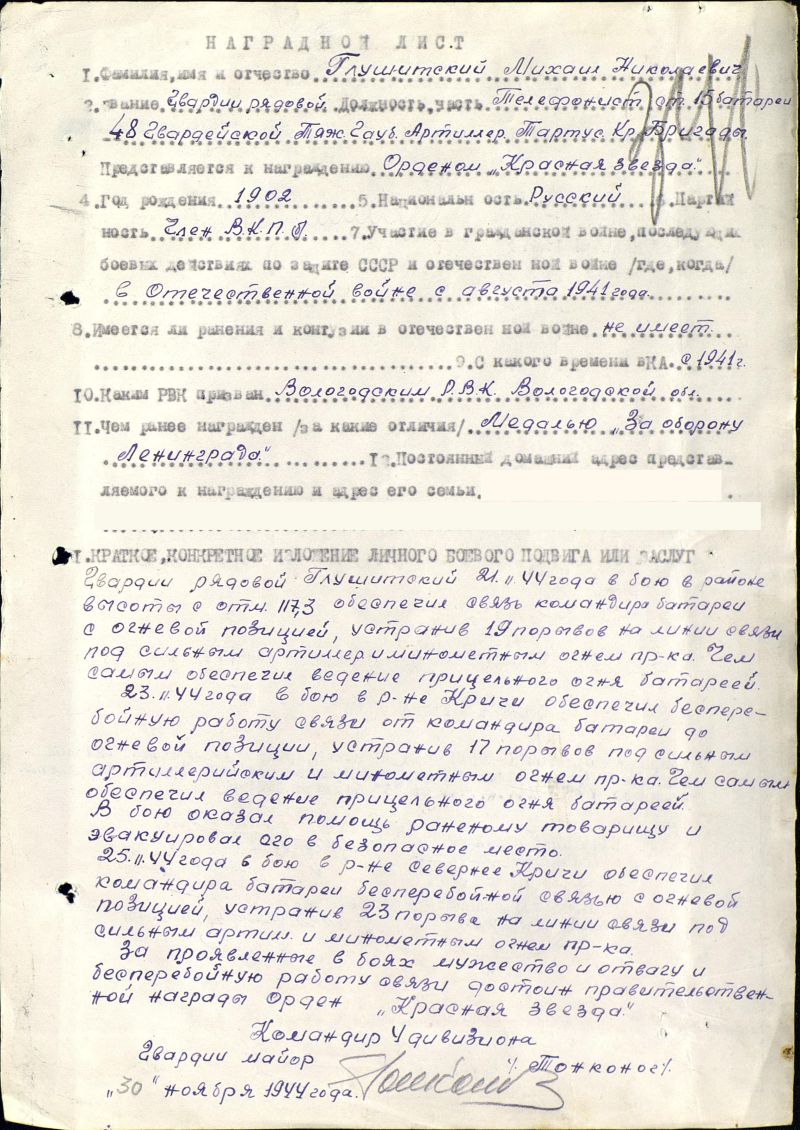 НАГРАДНОЙ ЛИСТ
1.Фамилия,имя и отчество Глушитский Михаил Николаевич
2. звание Гвардии рядовой. Должность,часть Телефонист ст. 15 батареи
48 Гвардейской Тяж. Гауб. Артиллер. Тартус. Кр. Бригады
Представляется к награждению Орденом „Красная звезда"
4.Год рождения 1902 5.Национальн ость Русский 6.Партий
ность Член В.К.П.б. 7.Участие в гражданской войне,последующих
боевых действиях по защите СССР и отечествен ной войне /где,когда/
в Отечественной войне с августа 1941 года.
8.Имеется ли ранения и контузии в отечествен ной войне не имеет.
9.С какого времени вКА. с 1941 г.
10.Каким РВК призван Вологодским Р.В.К. Вологодской обл.
11.Чем ранее награжден /за какие отличия/ Медалью „За оборону
Ленинграда" 12.Постоянный домашний адрес представ-
ляемого к награждению и адрес его семьи.
1.КРАТКОЕ,КОНКРЕТНОЕ ИЗЛОЖЕНИЕ ЛИЧНОГО БОЕВОГО ПОДВИГА ИЛИ ЗАСЛУГ
Гвардии рядовой Глушитский 21.11.44 года в бою в районе
высоты с отм. 117,3 обеспечил связь командира батареи
с огневой позицией, устранив 19 порывов на линии связи
под сильным артиллер и минометным огнем пр-ка. Чем
самым обеспечил ведение прицельного огня батареей.
23.11.44 года в бою в р-не Кричи обеспечил беспере-
бойную работу связи от командира батареи до
огневой позиции, устранив 17 порывов под сильным
артиллерийским и минометным огнем пр-ка. Чем самым
обеспечил ведение прицельного огня батареей.
В бою оказал помощь раненому товарищу и
эвакуировал его в безопасное место.
25.11.44 года в бою в р-не севернее Кричи обеспечил
командира батареи бесперебойной связью с огневой
позицией, устранив 23 порыва на линии связи под
сильным артил. и минометным огнем пр-ка.
За проявленные в боях мужество и отвагу и
бесперебойную работу связи достоин правительствен-
ной награды Орден „Красная звезда"
Командир 4 дивизиона
Гвардии майор /Тонконог/.
„30" ноября 1944 года.